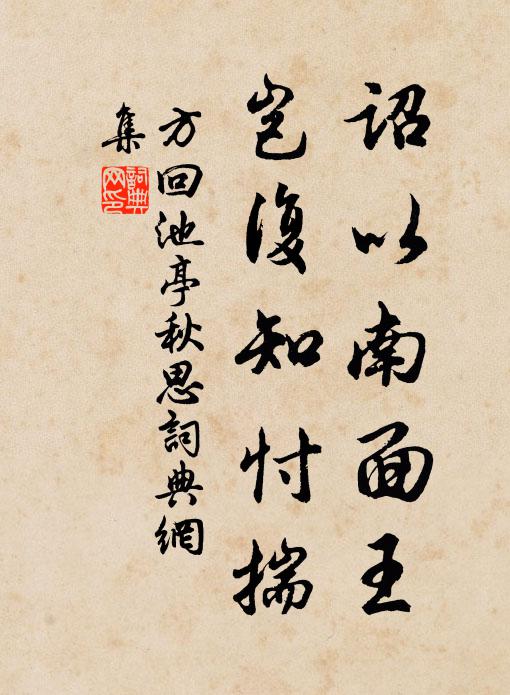 詔以南面王
豈復知忖揣
方回池亭秋思詞典網
集
詞典
网印